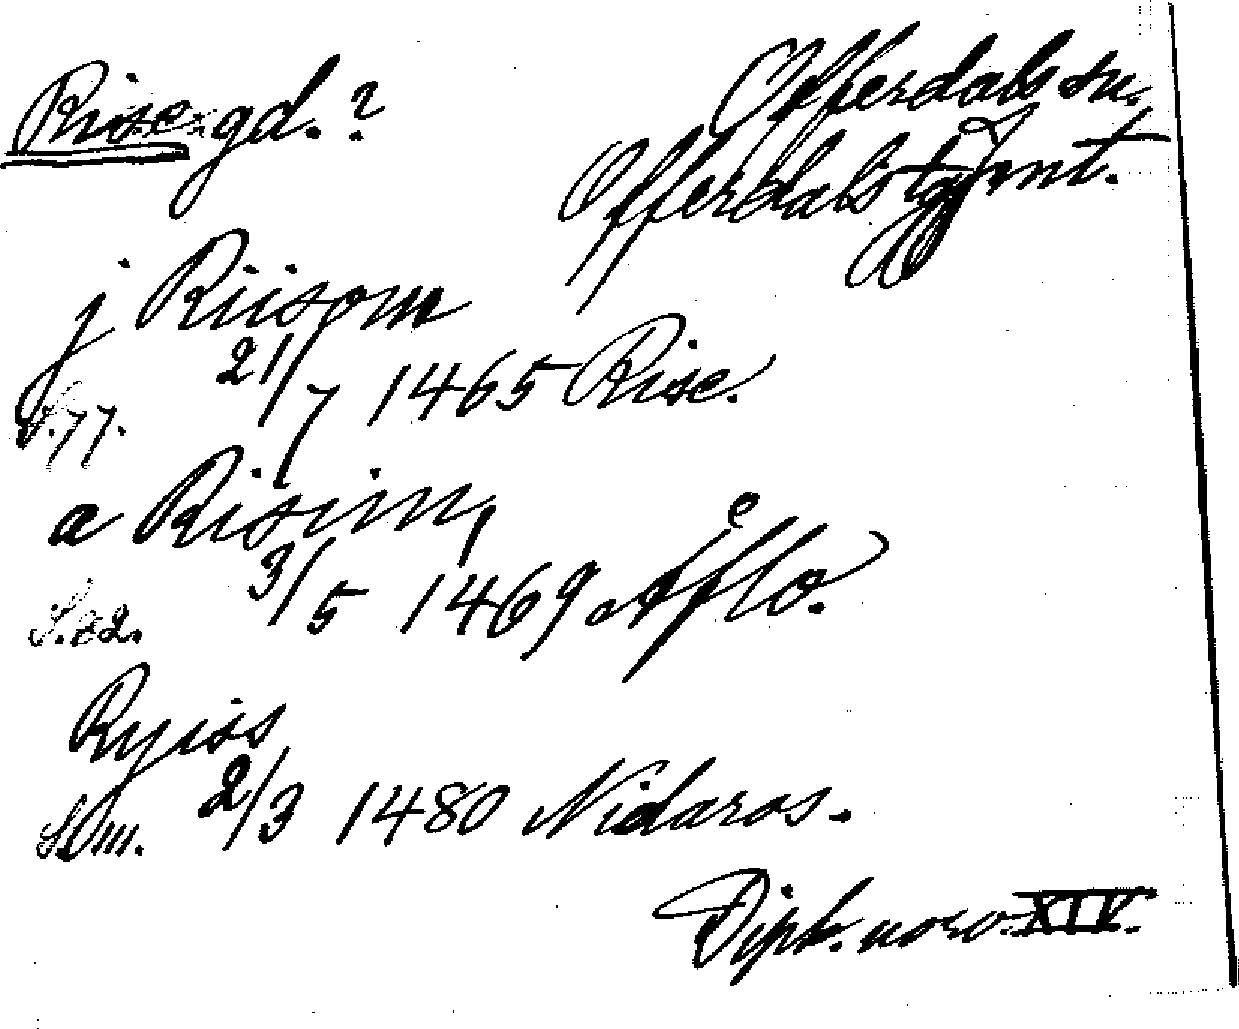 Rise gd.?
Offerdals sn.
Offerdals tg Jmt.
j Riisom
21/7 1465 Rise.
S. 77.
a Risim,
3/5 1469 Åflo.
S. 82.
Ryiss
2/3 1480 Nidaros.
S. 111.
Dipl. norv. XIV.